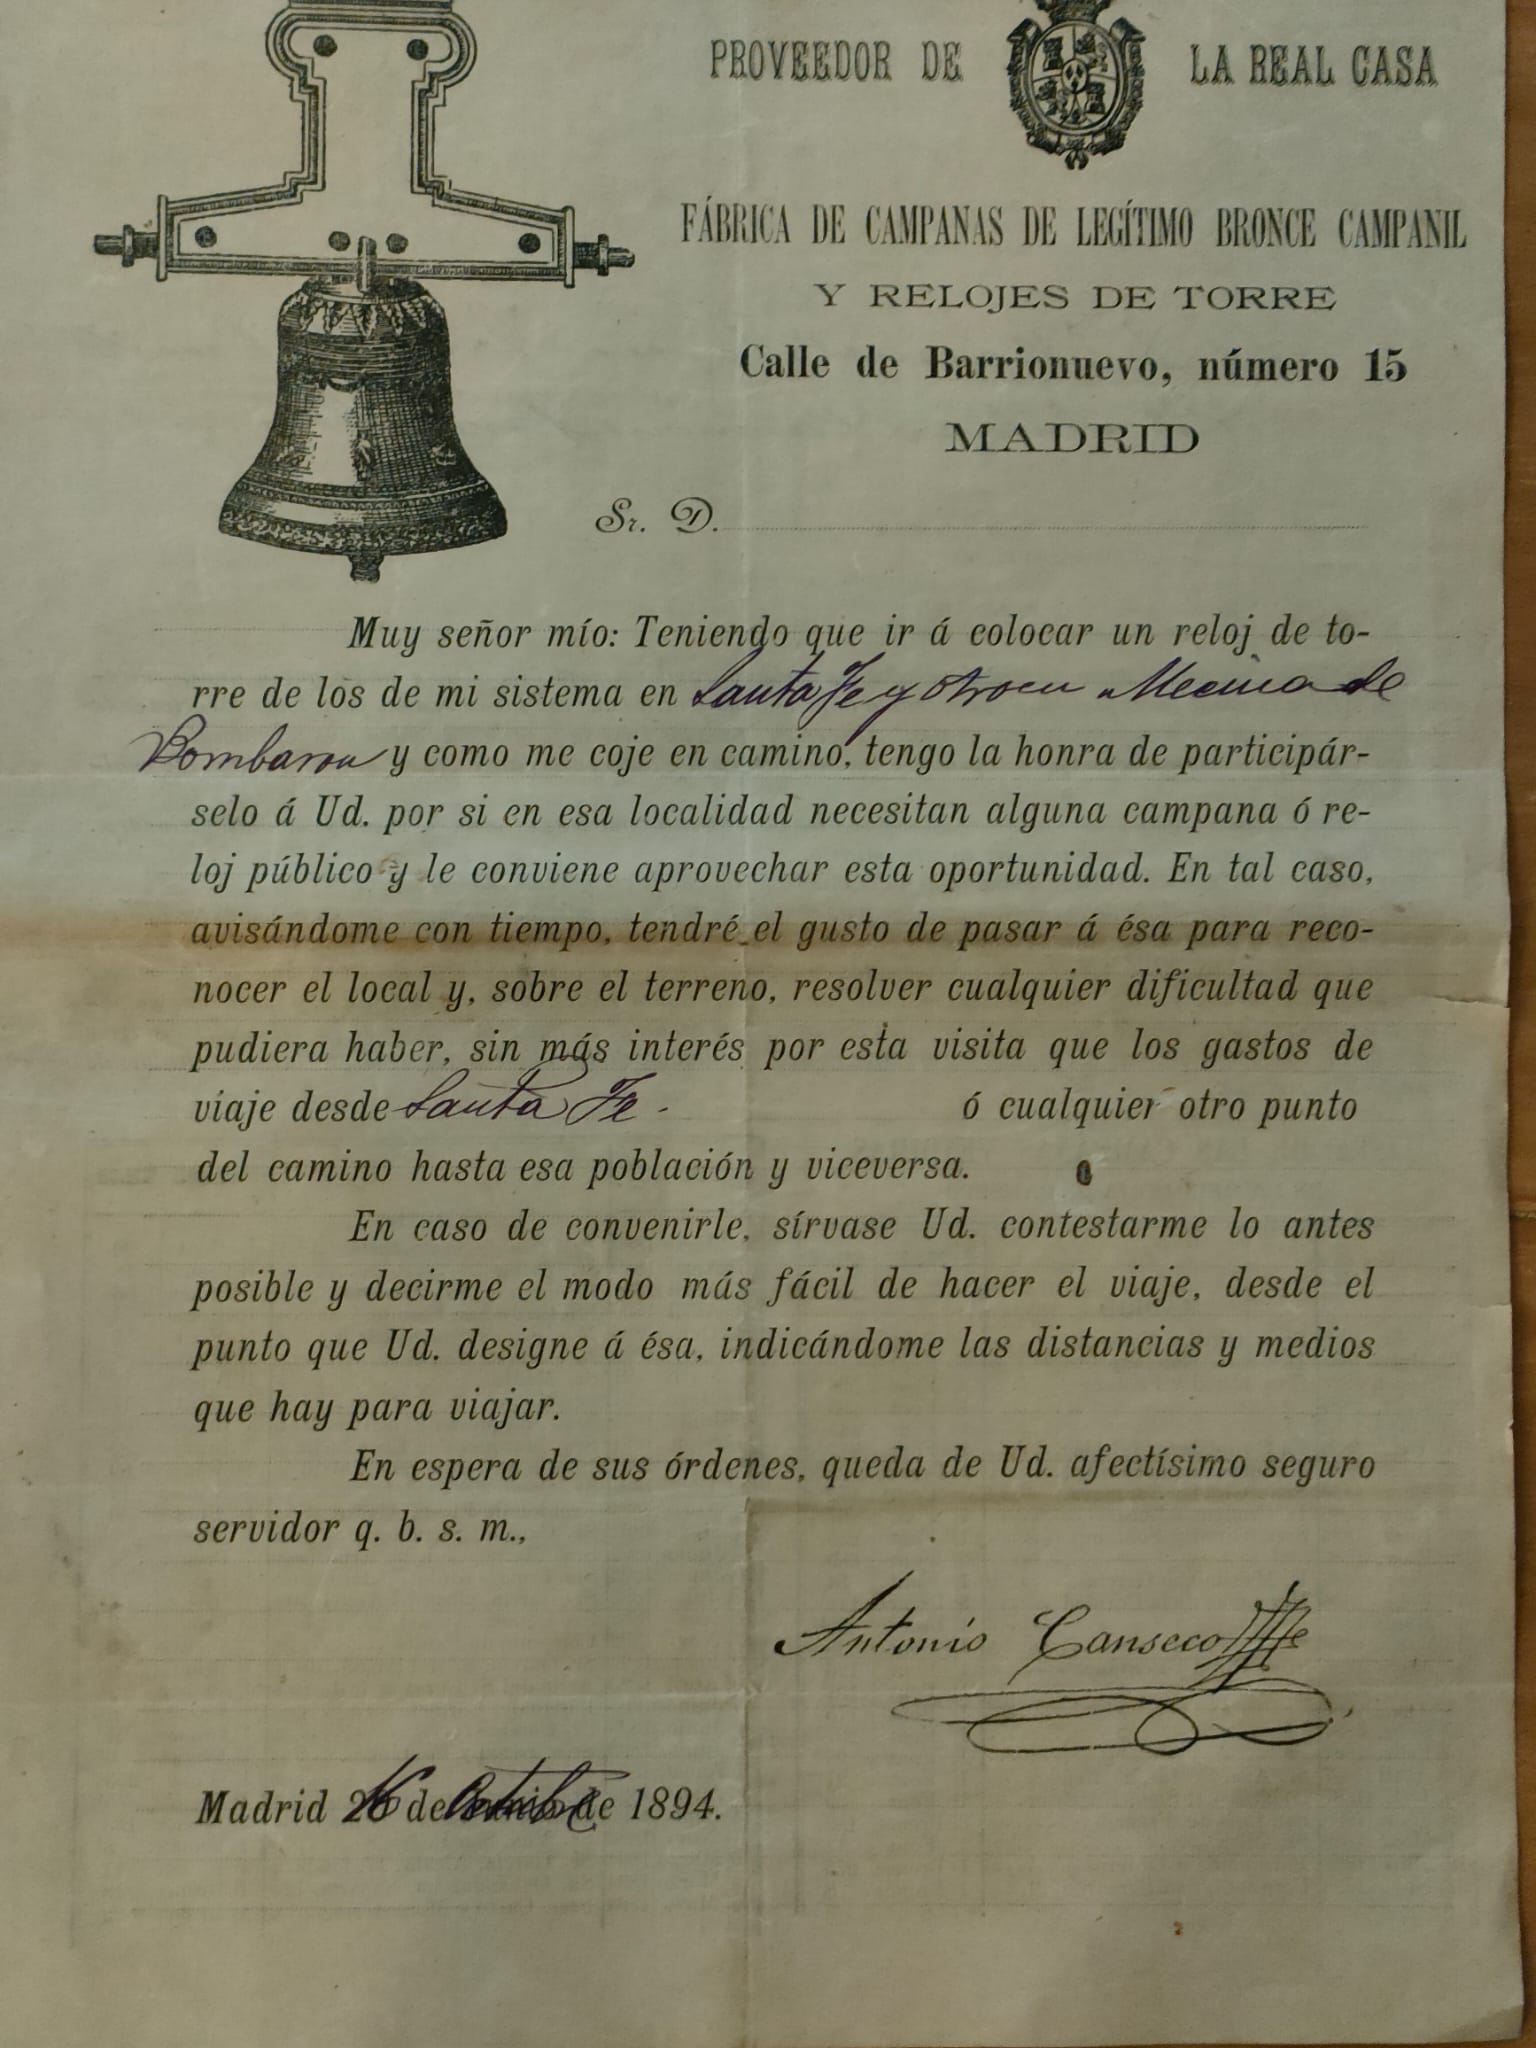 PROVEEDOR DE LA REAL CASA
FÁBRICA DE CAMPANAS DE LEGÍTIMO BRONCE CAMPANIL
Y RELOJES DE TORRE
Calle de Barrionuevo, número 15
MADRID
Sr. D.
Muy señor mío: Teniendo que ir á colocar un reloj de to-
rre de los de mi sistema en Santa Fe y otro en Mecina de
Bombaron y como me coje en camino, tengo la honra de participár-
selo á Ud. por si en esa localidad necesitan alguna campana ó re-
loj público y le conviene aprovechar esta oportunidad. En tal caso,
avisándome con tiempo, tendré el gusto de pasar á ésa para reco-
nocer el local y, sobre el terreno, resolver cualquier dificultad que
pudiera haber, sin más interés por esta visita que los gastos de
viaje desde Santa Fe. ó cualquier otro punto
del camino hasta esa población y viceversa.
En caso de convenirle, sírvase Ud. contestarme lo antes
posible y decirme el modo más fácil de hacer el viaje, desde el
punto que Ud. designe á ésa, indicándome las distancias y medios
que hay para viajar.
En espera de sus órdenes, queda de Ud. afectísimo seguro
servidor q. b. s. m.,
Antonio Canseco
Madrid de de 1894.